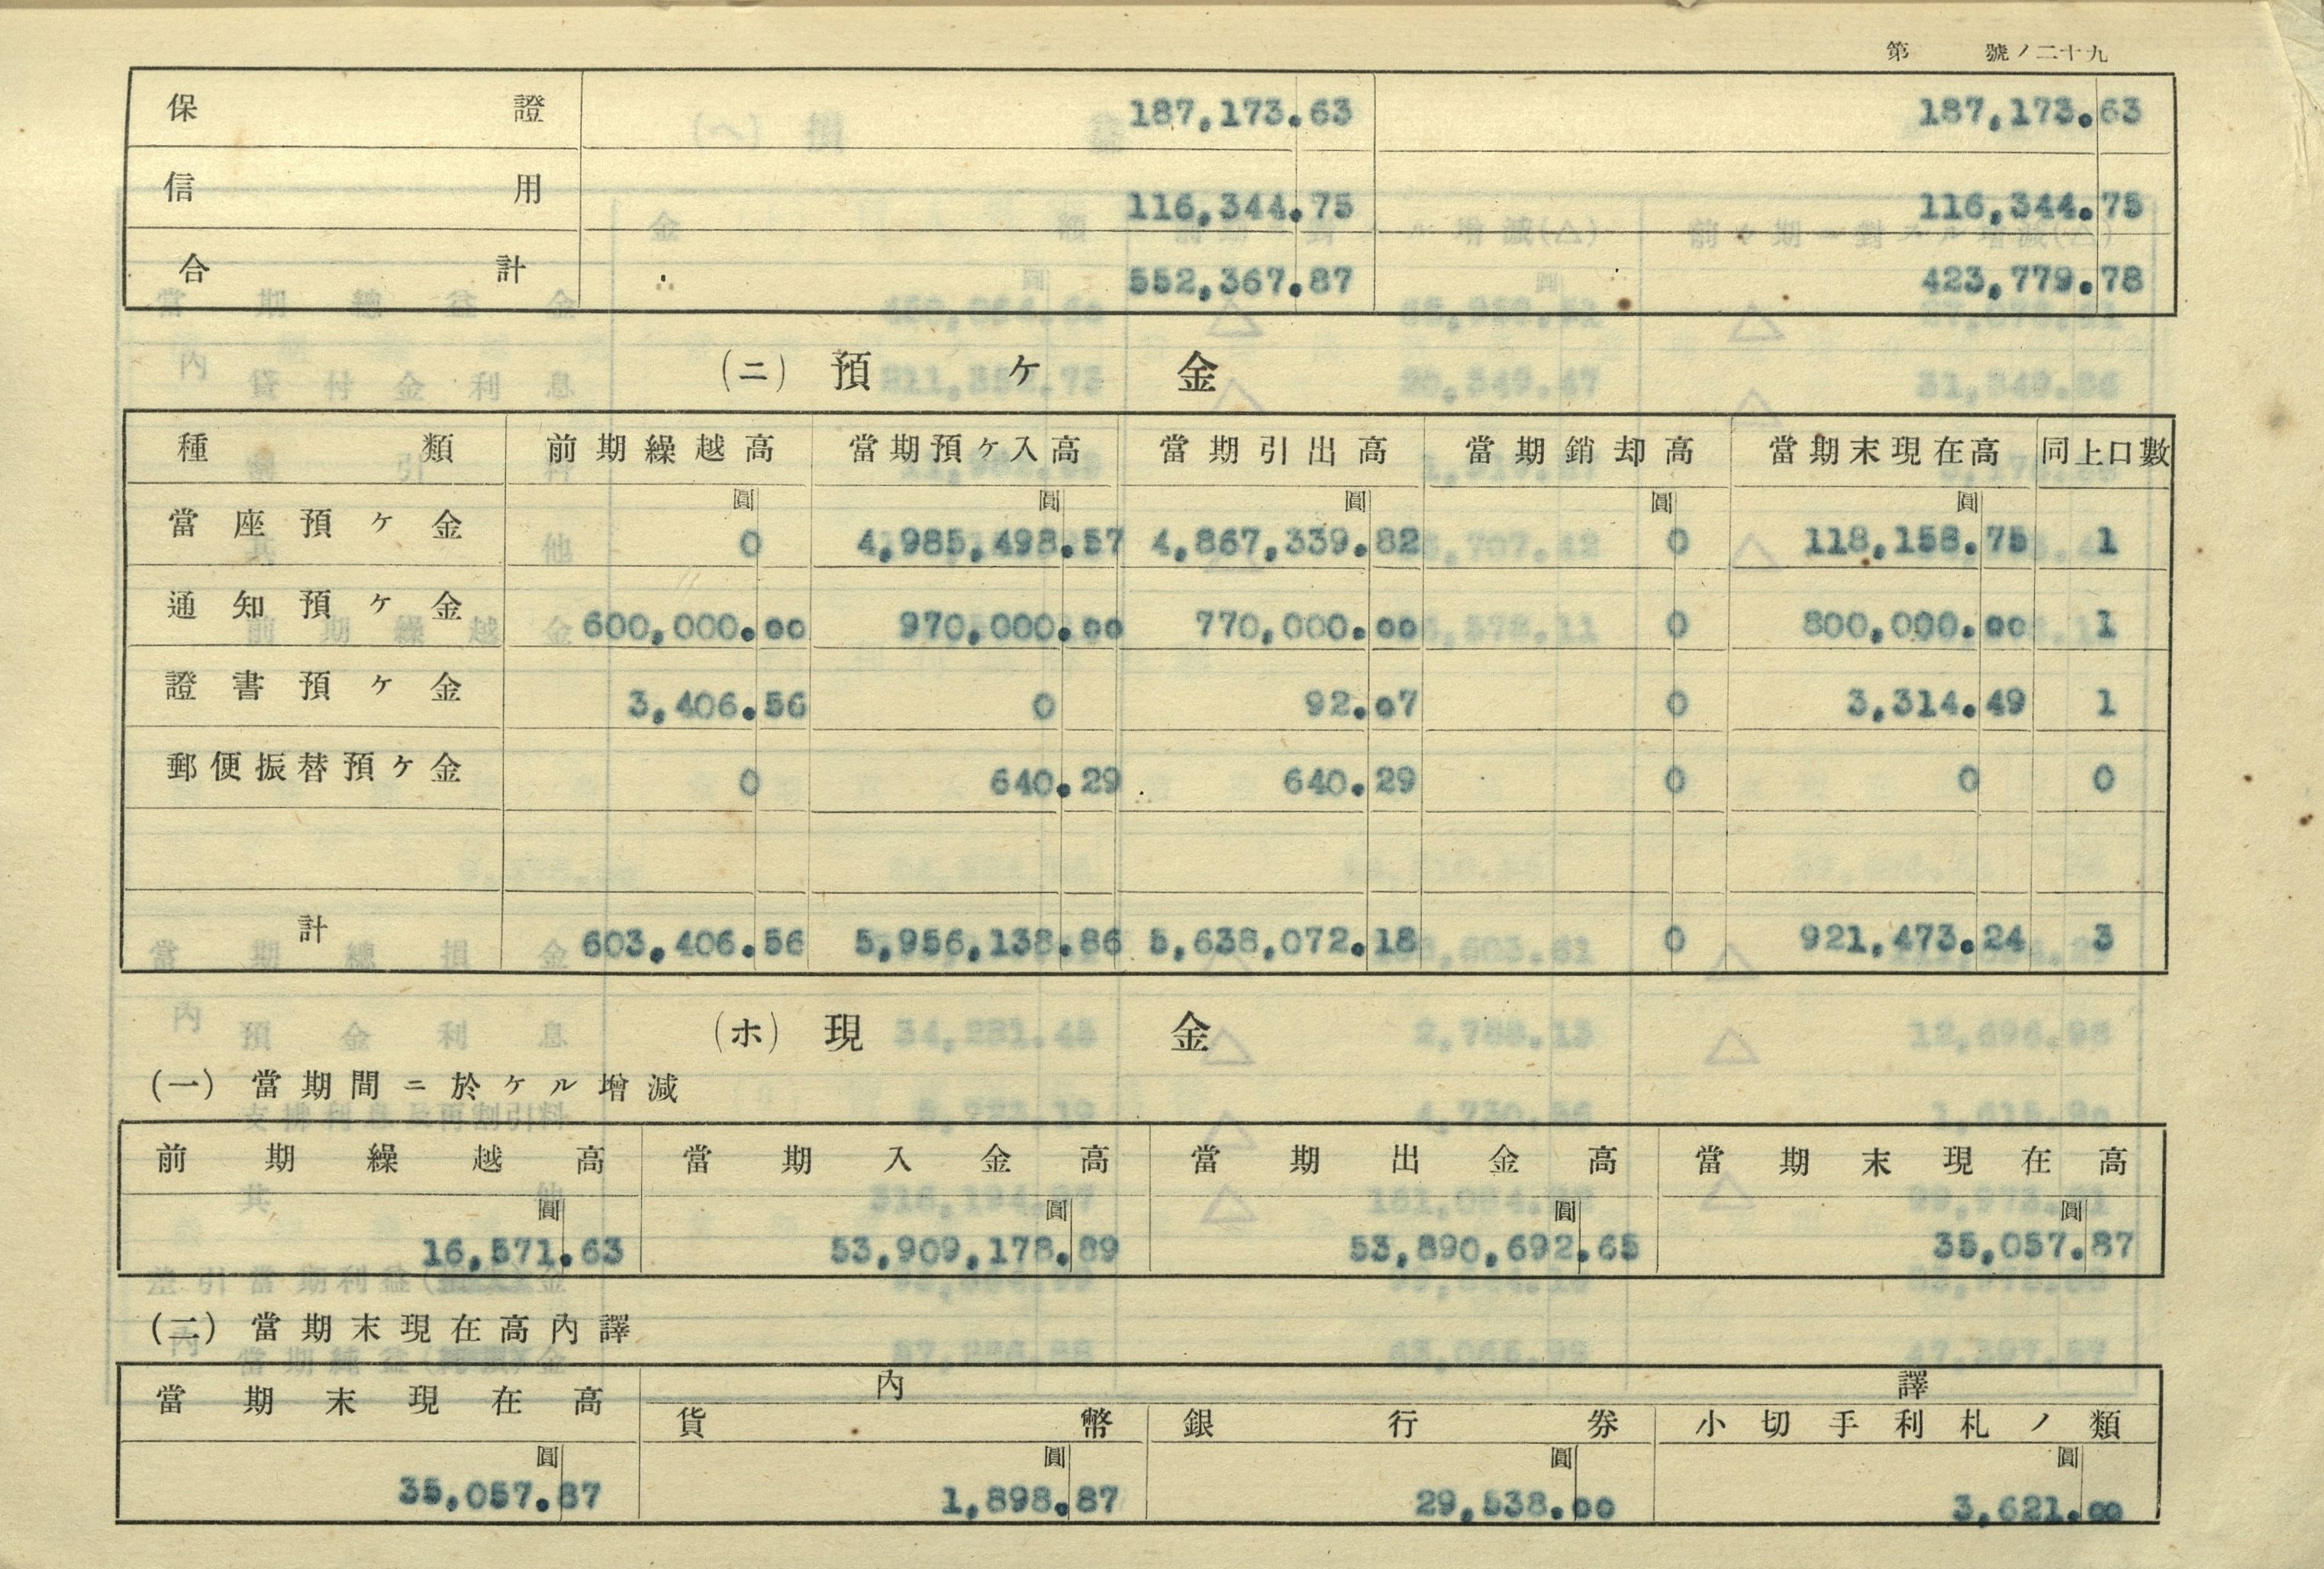 第 號ノ二十九
保證 187,173.63 187,173.63
信用 116,344.75 116,344.75
合計 552,367.87 423,779.78
(ニ) 預ケ金
種類 前期繰越高 當期預ケ入高 當期引出高 當期銷却高 當期末現在高 同上口數
圓 圓 圓 圓 圓
當座預ケ金 0 4,985,498.57 4,867,339.82 0 118,158.75 1
通知預ケ金 600,000.00 970,000.00 770,000.00 0 800,000.00 1
證書預ケ金 3,406.56 0 92.07 0 3,314.49 1
郵便振替預ケ金 0 640.29 640.29 0 0 0
計 603,406.56 5,956,138.86 5,638,072.18 0 921,473.24 3
(ホ) 現金
(一) 當期間ニ於ケル增減
前期繰越高 當期入金高 當期出金高 當期末現在高
圓 圓 圓 圓
16,571.63 53,909,178.89 53,890,692.65 35,057.87
(二) 當期末現在高內譯
當期末現在高 內譯
貨幣 銀行券 小切手利札ノ類
圓 圓 圓 圓
35,057.87 1,898.87 29,538.00 3,621.00